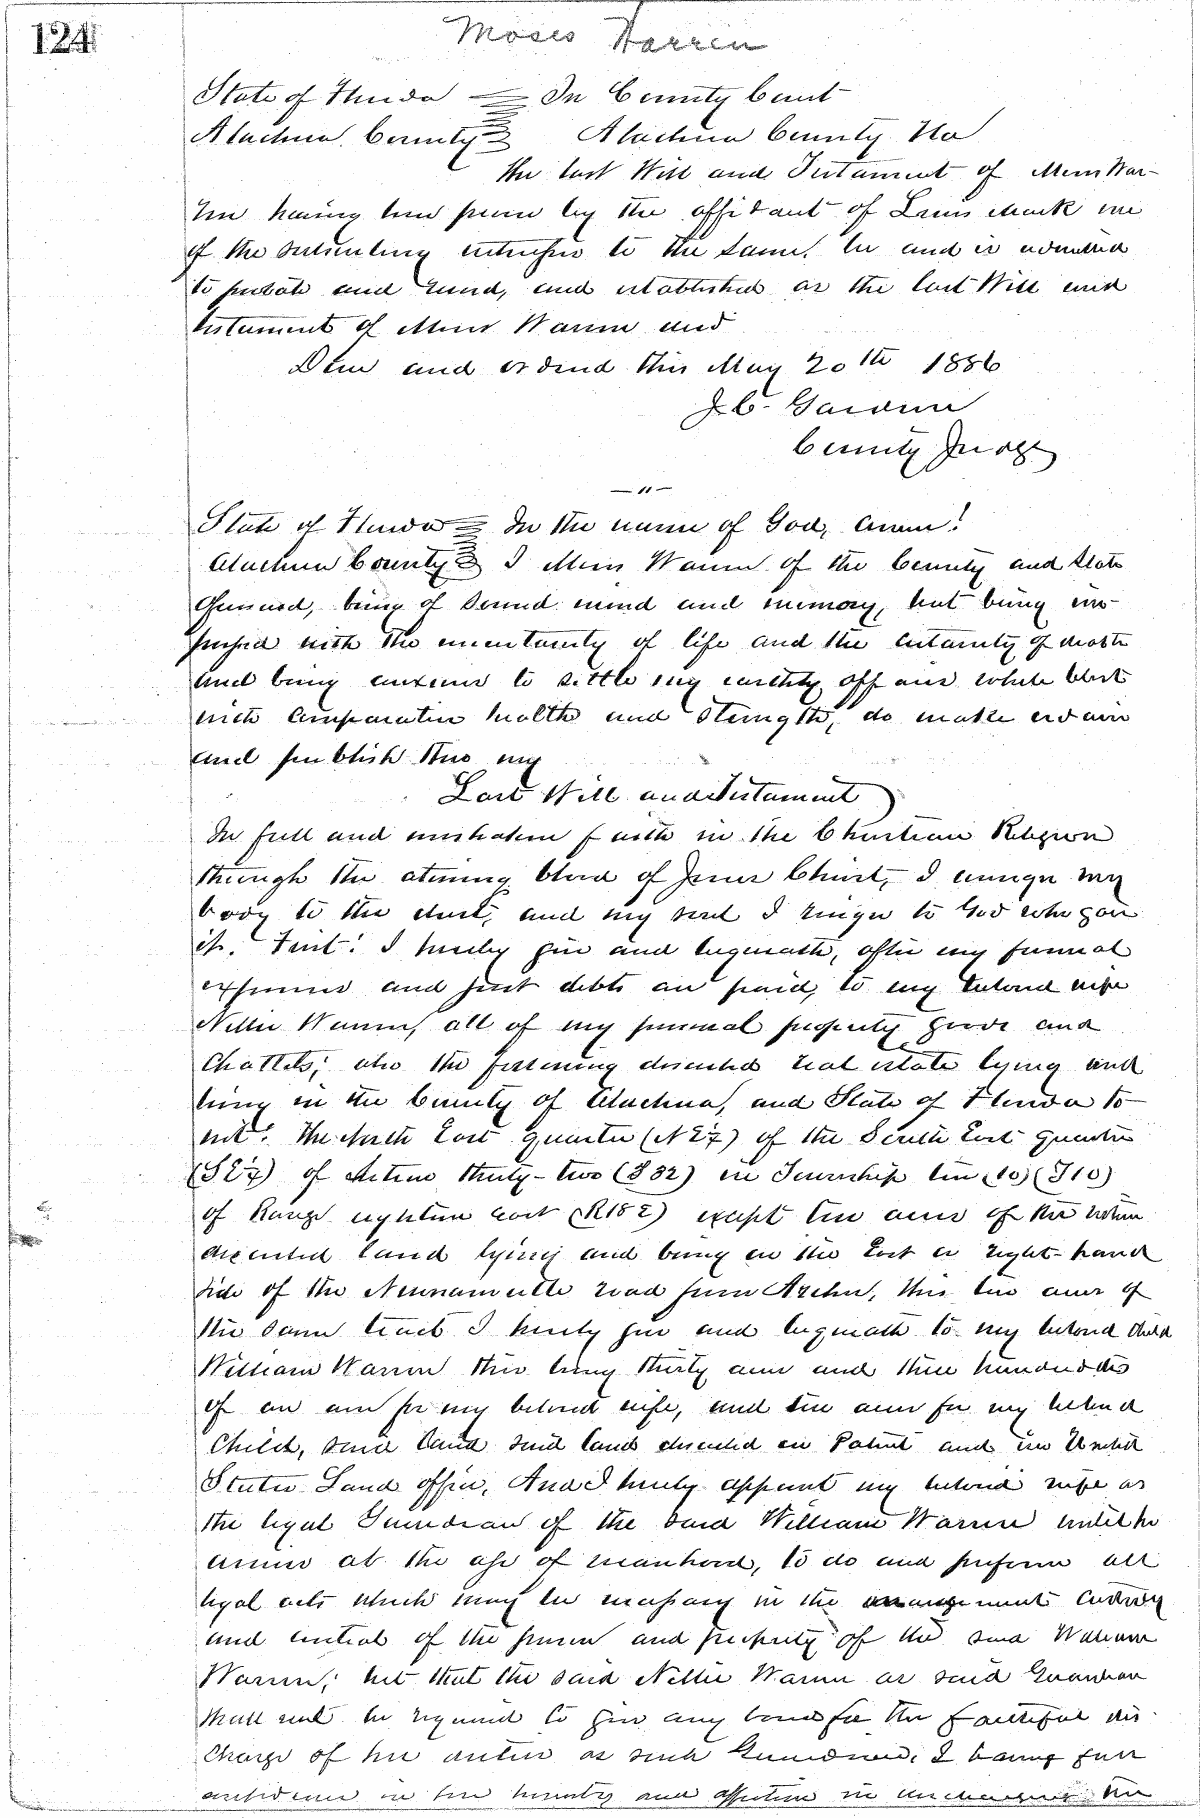 124
Moses Warren
State of Florida In County Court
Alachua County Alachua County Fla
The last Will and Testament of Moses War-
ren having been proven by the affidavit of Lewis Mack one
of the subscribing witnesses to the same, be and is admitted
to probate and record, and established as the last Will and
testament of Moses Warren and
Done and ordered this May 20th 1886
J.C. Gardner
County Judge
—"—
State of Florida In the name of God, amen!
Alachua County I Moses Warren of the County and State
aforesaid, being of sound mind and memory, but being im-
pressed with the uncertainty of life and the certainty of death
and being anxious to settle my earthly affairs while blest
with comparative health and strength, do make ordain
and publish this my
Last Will and Testament
In full and unshaken faith in the Christian Religion
through the atoning blood of Jesus Christ, I consign my
body to the dust, and my soul I resign to God who gave
it. First: I hereby give and bequeath, after my funeral
expenses and just debts are paid, to my beloved wife
Nellie Warren, all of my personal property goods and
Chattels; also the following described real estate lying and
being in the County of Alachua, and State of Florida to
wit: The North East quarter (NE¼) of the South East quarter
(SE¼) of Section thirty-two (S32) in Township ten (10) (T10)
of Range eighteen East (R18E) except ten acres of the within
described land lying and being on the East or right-hand
side of the Newnansville road from Archer, this ten acres of
the same tract I hereby give and bequeath to my beloved Child
William Warren this being thirty acres and three hundredths
of an acre for my beloved wife, and ten acres for my beloved
Child, said land said lands described in Patent and in United
States Land office, And I hereby appoint my beloved wife as
the legal Guardian of the said William Warren until he
arrives at the age of manhood, to do and perform all
legal acts which may be necessary in the arrangement Custody
and control of the person and property of the said William
Warren; but that the said Nellie Warren as said Guardian
shall not be required to give any bond for the faithful dis-
charge of her duties as such Guardian, I having full
confidence in her honesty and affection in discharging the